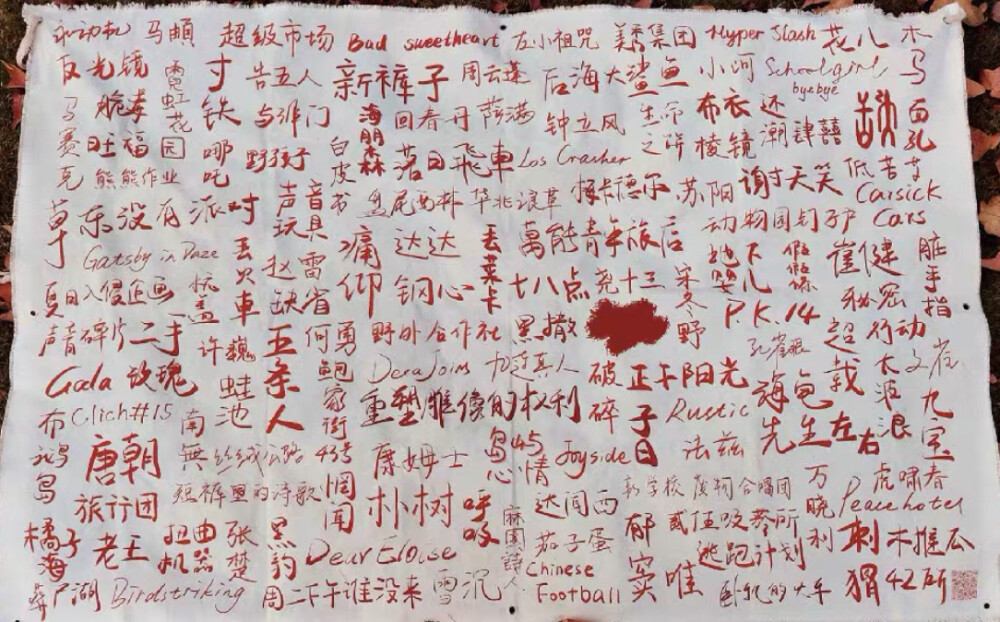 永动机 马頔 超级市场 Bad sweetheart 左小祖咒 美秀集团 Hyper Slash 花儿
木马
反光镜 霓虹花园 寸铁 告五人 新裤子 周云蓬 后海大鲨鱼 小河 Schoolgirl byebye
面孔
马赛克 脆莓 与非门 海朋森 回春丹 萨满 钟立风 生命之饼 布衣 还潮 肆囍
旺福 哪吒 野孩子 白皮书 落日飛車 Los Crasher 棱镜
熊熊作业 声音玩具 盘尾西林 华北浪革 怪卡德尔 苏阳 谢天笑 低苦艾
草东没有派对 Carsick Cars
Gatsby in Daze 丢火車 赵雷 痛仰 达达 丢莱卡 萬能青年旅店 动物园钉子户
夏日入侵企画 缺省 钢心 七八点 尧十三 宋冬野 她 下儿 崔健 脏手指
声音碎片 二手玫瑰 许巍 五条人 何勇 野外合作社 黑撒 P.K.14 秘密行动
Gala Dera Joim 九连真人 破碎 正午阳光 孔雀眼 超载 太波浪
布 Clich#15 南無 蛙池 鲍家街43号 重塑雕像的权利 子曰 Rustic 旅包 文雀
鹅岛 唐朝 丝绒公路 康姆士 岛屿心情 Joyside 法兹 先生 左右 九宝
旅行团 短裤里的诗歌 惘闻 朴树 呼吸 达闻西 新学校废物合唱团 万晓利 虎啸春
Peacehotel
橘子海 老王 扭曲机器 张楚 黑豹 Dear Eloise 麻園詩人 茄子蛋 郁 贰伍吸 葬所 刺猬 木推瓜
逃跑计划
尸湖 Birdstriking 周二午午谁没来 雪沉 Chinese Football 窦唯 卧轨的火车 42所